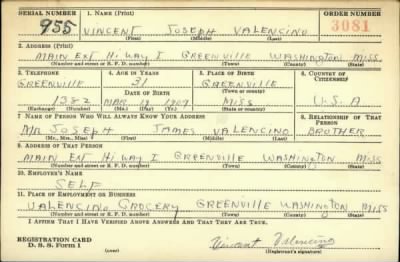 SERIAL NUMBER 1. NAME (Print) ORDER NUMBER
955 VINCENT JOSEPH VALENCINO 3081
(First) (Middle) (Last)
2. ADDRESS (Print)
MAIN EXT HI WAY I GREENVILLE WASHINGTON MISS.
(Number and street or R. F. D. number) (Town) (County) (State)
3. TELEPHONE 4. AGE IN YEARS 5. PLACE OF BIRTH 6. COUNTRY OF CITIZENSHIP
GREENVILLE 31 GREENVILLE
DATE OF BIRTH (Town or county)
1382 MAR 19 1909 MISS U.S.A
(Exchange) (Number) (Mo.) (Day) (Yr.) (State or country)
7. NAME OF PERSON WHO WILL ALWAYS KNOW YOUR ADDRESS 8. RELATIONSHIP OF THAT PERSON
MR JOSEPH JAMES VALENCINO BROTHER
(Mr., Mrs., Miss) (First) (Middle) (Last)
9. ADDRESS OF THAT PERSON
MAIN EXT HI WAY I GREENVILLE WASHINGTON MISS
(Number and street or R. F. D. number) (Town) (County) (State)
10. EMPLOYER'S NAME
SELF
11. PLACE OF EMPLOYMENT OR BUSINESS
VALENCINO GROCERY GREENVILLE WASHINGTON MISS
(Number and street or R. F. D. number) (Town) (County) (State)
I AFFIRM THAT I HAVE VERIFIED ABOVE ANSWERS AND THAT THEY ARE TRUE.
REGISTRATION CARD
D. S. S. Form 1 Vincent Valencino
(Registrant's signature)